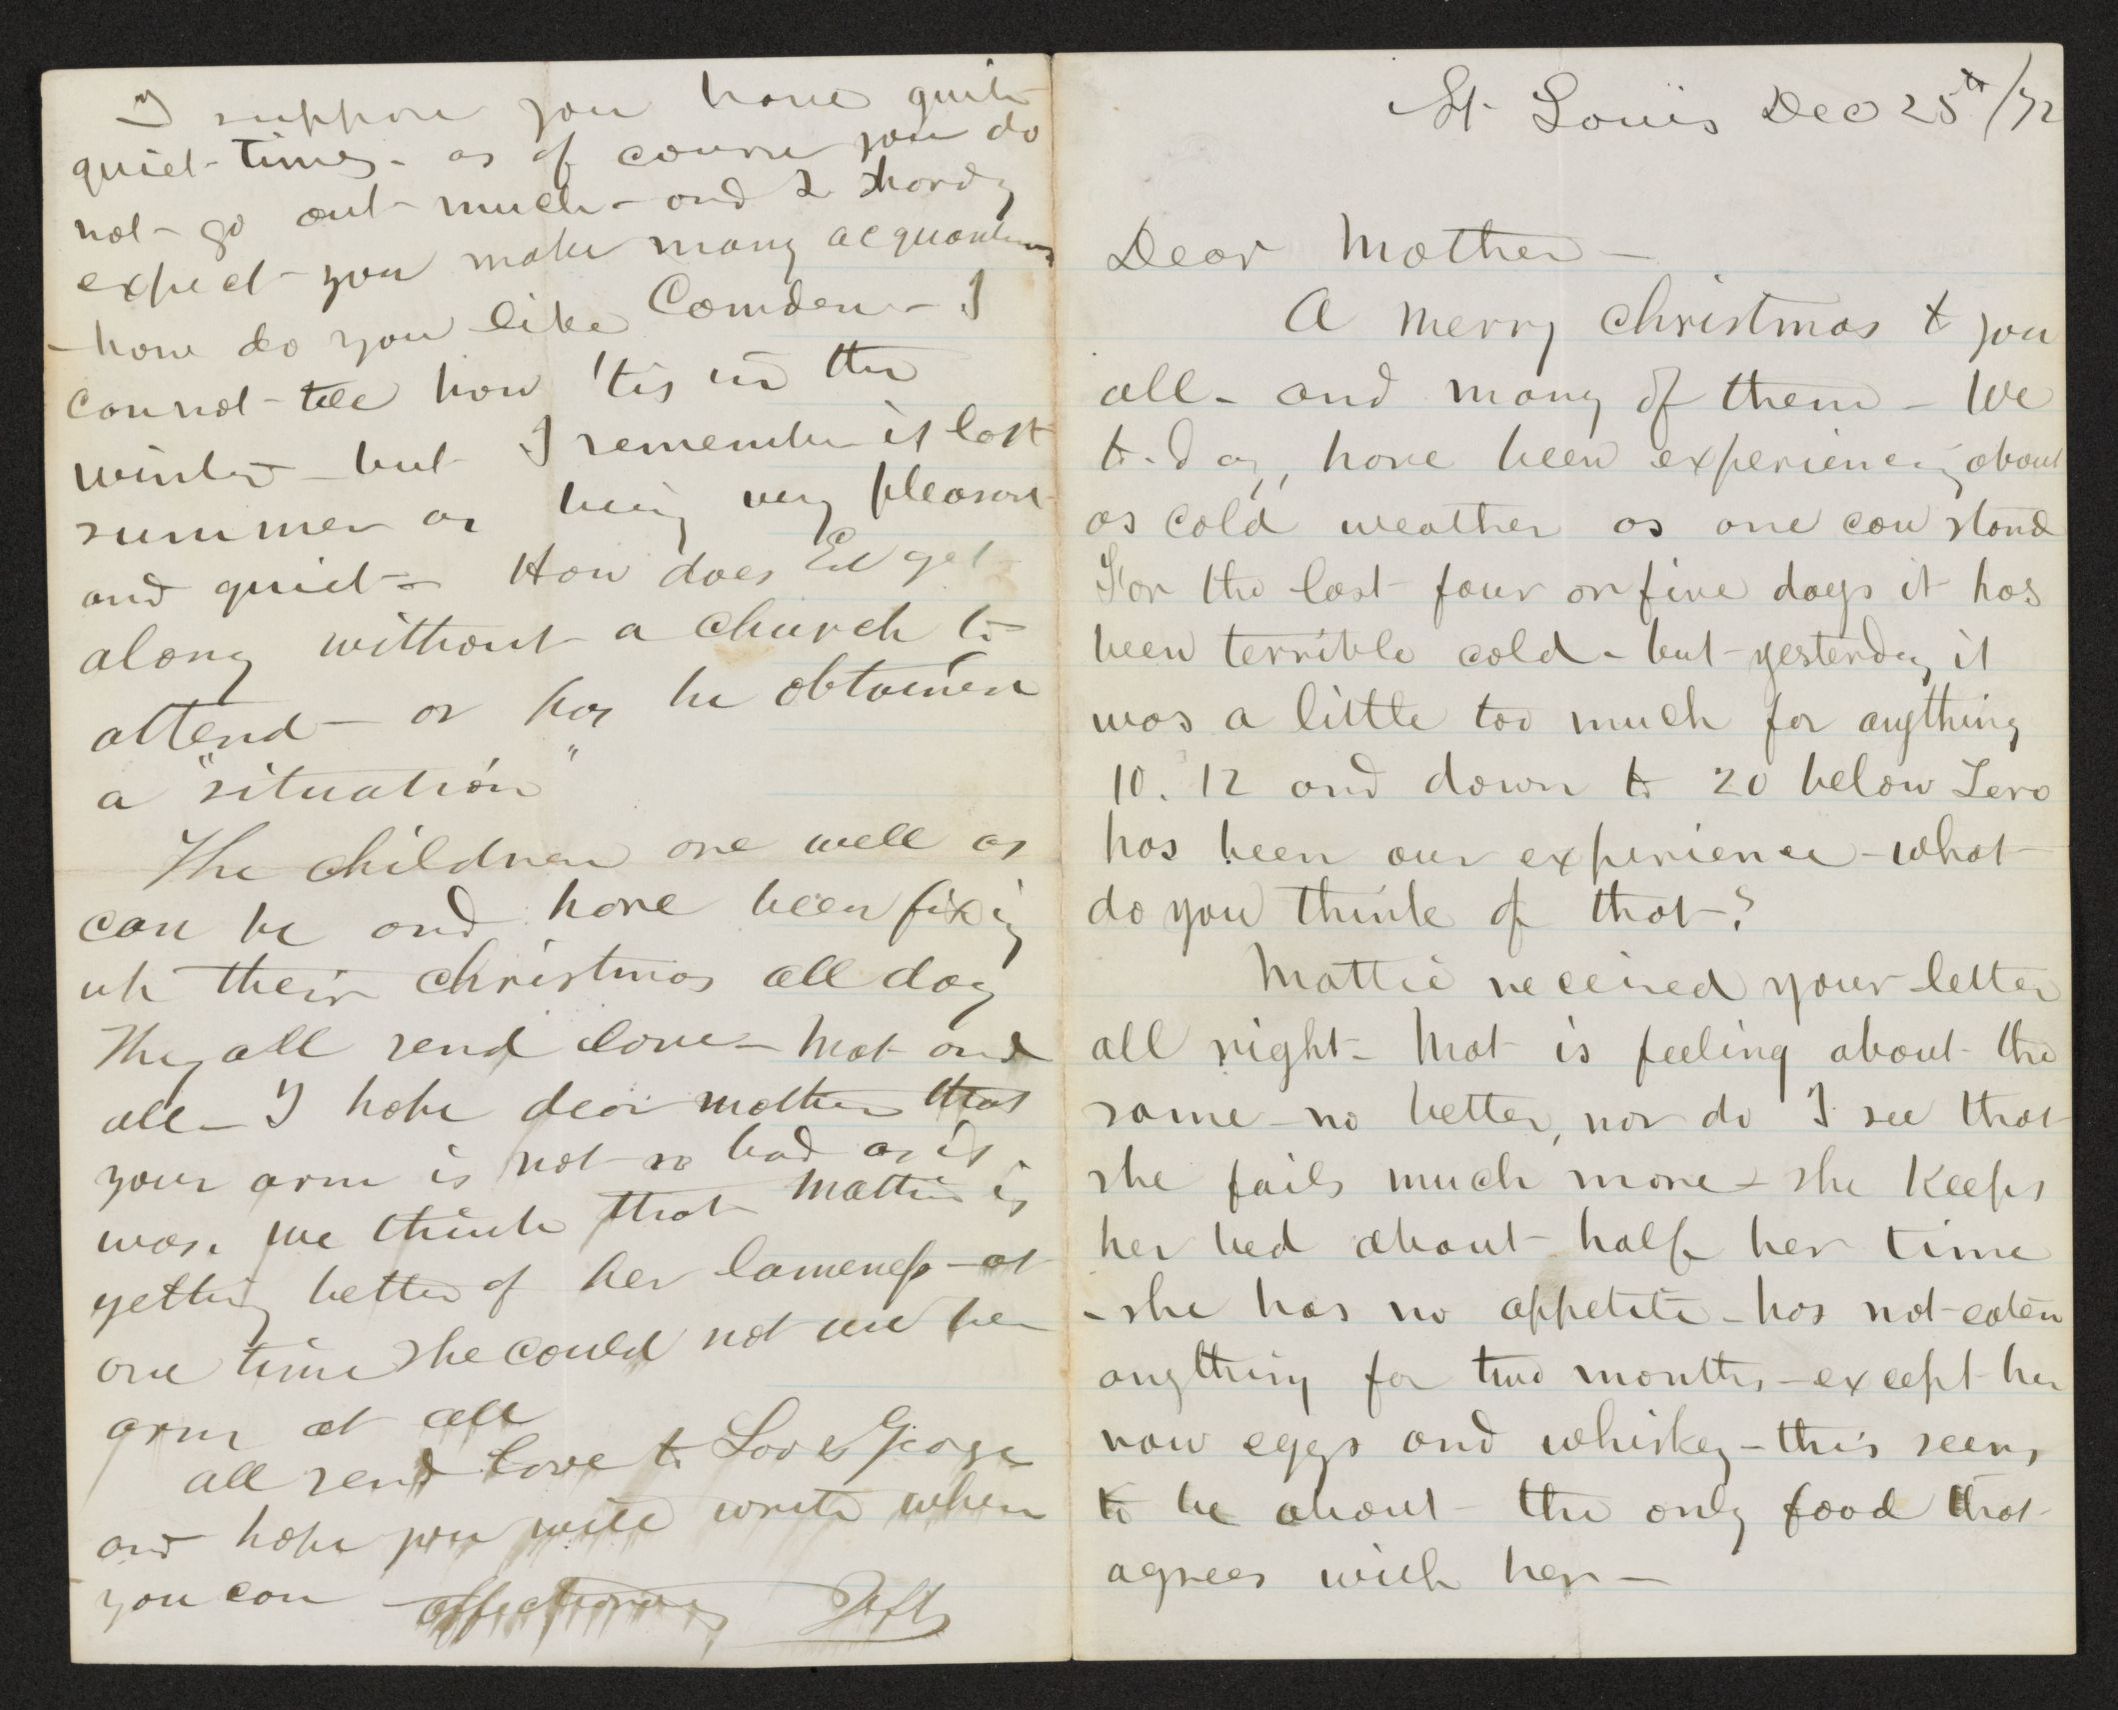 St. Louis Dec 25th/72
Dear Mother –
A merry Christmas to you
all – and many of them – We
to-day, have been experiencing about
as cold weather as one can stand
For the last four or five days it has
been terrible cold – but yesterday it
was a little too much for anything
10. 12 and down to 20 below Zero
has been our experience – what
do you think of that?
Mattie received your letter
all right – Mat is feeling about the
same – no better, nor do I see that
she fails much more – she keeps
her bed about half her time
– she has no appetite – has not eaten
anything for two months – except her
raw eggs and whiskey – this seems
to be about the only food that
agrees with her –
I suppose you have quite
quiet times – as of course you do
not go out much – and I hardly
expect you make many acquantances
– how do you like Camden – I
cannot tell how 'tis in the
winter – but I remember it last
summer as being very pleasant
and quiet – How does Ed get
along without a church to
attend – or has he obtained
a "situation"
The children are well as
can be and have been fixing
up their christmas all day
They all send love – Mat and
all – I hope dear mother that
your arm is not so bad as it
was. We think that Mattie is
getting better of her lameness – at
one time she could not use her
arm at all
all send love to Lou & George
and hope you will write when
you can – affectionately Jeff